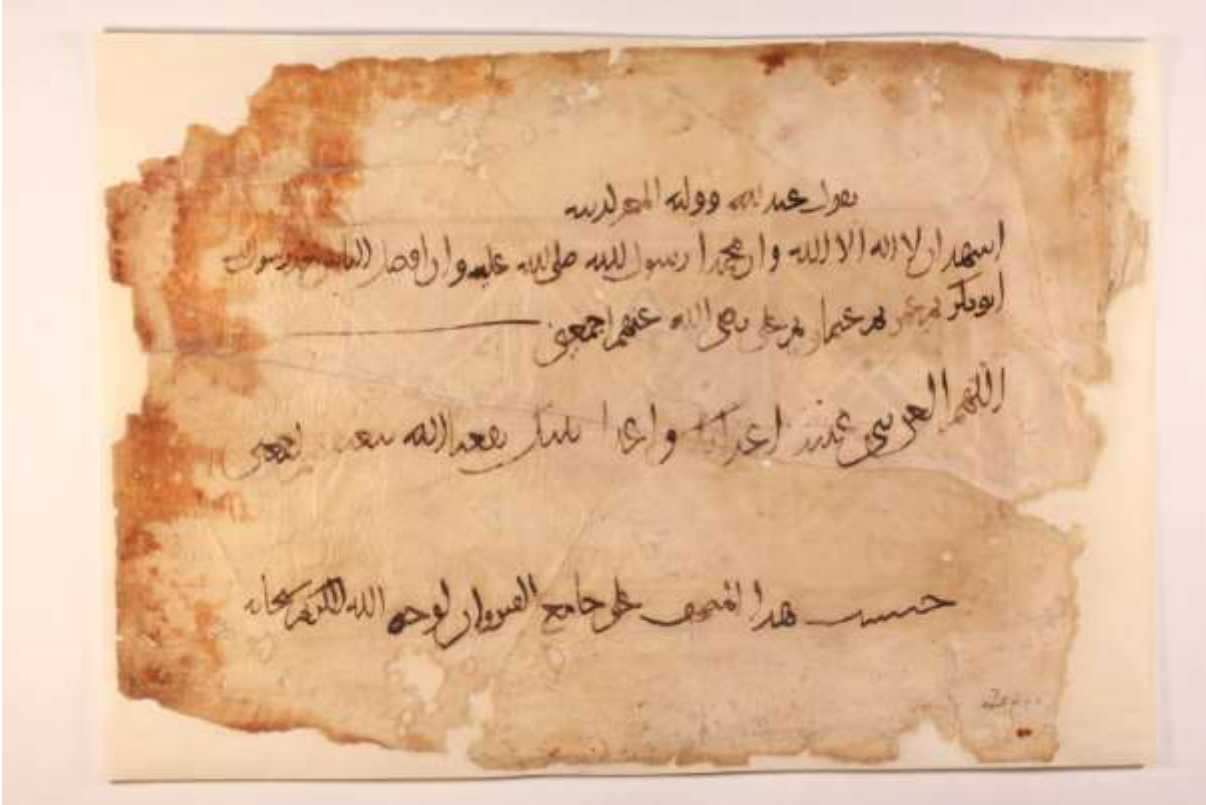 يقول عبد الله ووليه المعز لدينه
اشهد ان لا اله الا الله وان محمدا رسول الله صلى الله عليه وان افضل الناس بعد رسول الله
ابو بكر ثم عمر ثم عثمان ثم علي رضي الله عنهم اجمعين
اللهم العن بني عبيد اعداك واعدا نبيك نفعنا الله اجمعين
حبست هذا المصحف على جامع القيروان لوجه الله الكريم سبحانه